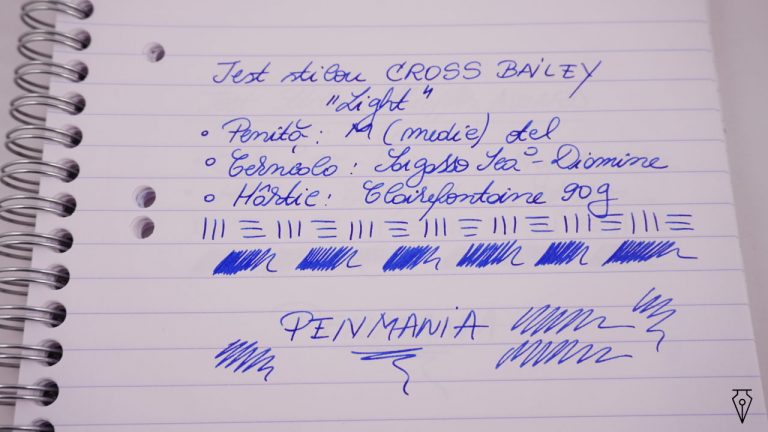 Test stilou CROSS BAILEY
"Light"
Peniță: M (medie) oțel
Cerneală: Sargasso Sea - Diamine
Hârtie: Clairefontaine 90g
PENMANIA